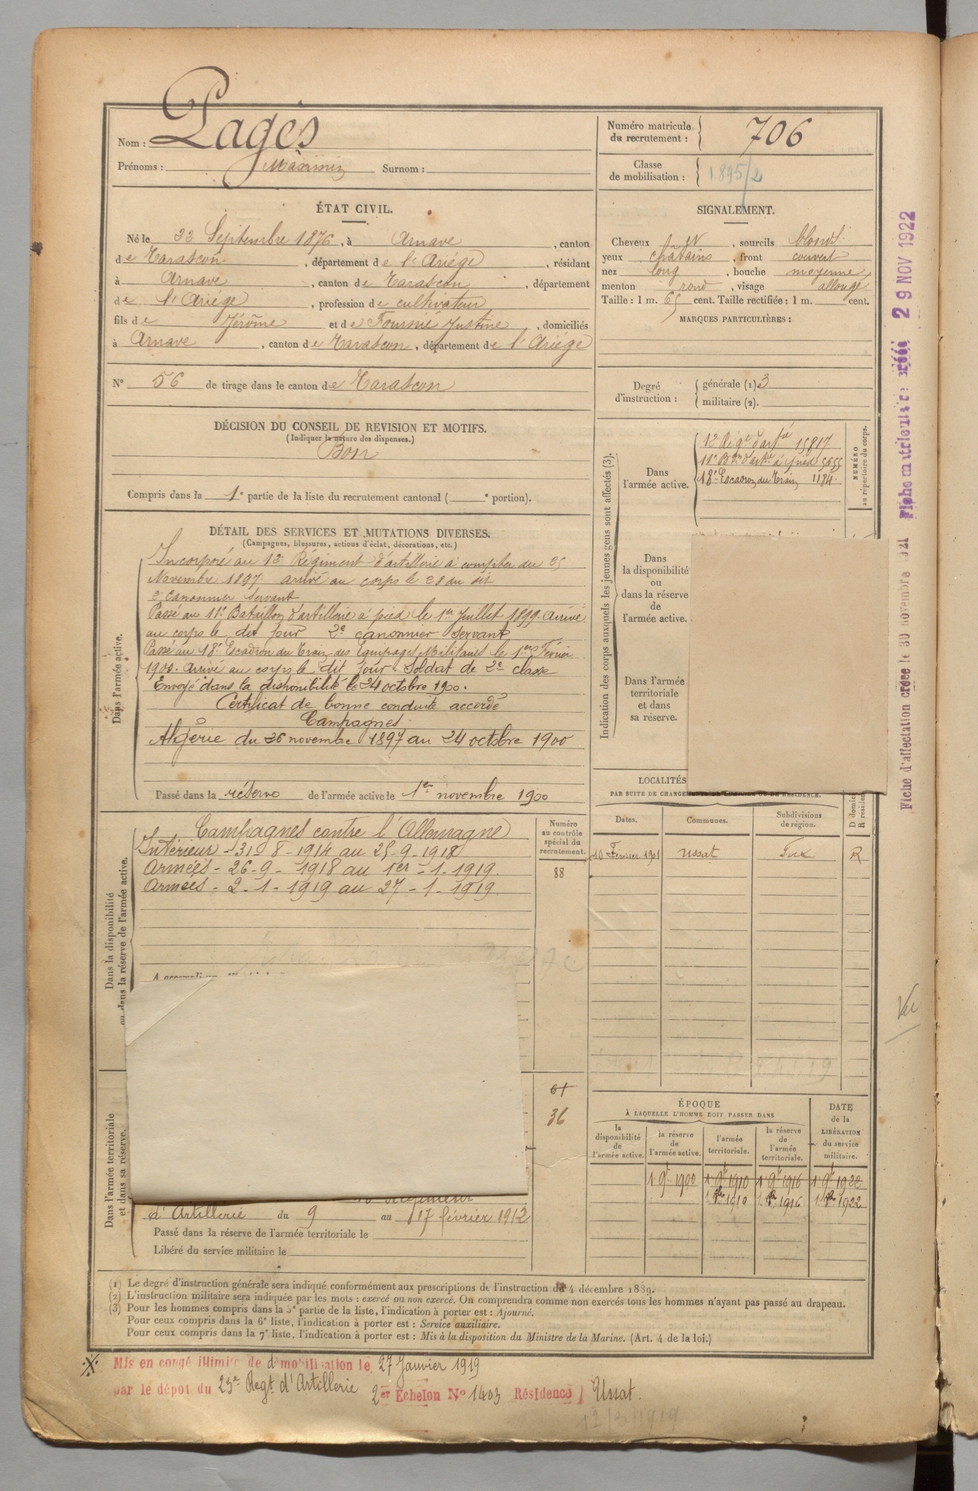 Nom : Pagès
Prénoms : Maximin Surnom :
Numéro matricule du recrutement : 706
Classe de mobilisation : 1895/2
ÉTAT CIVIL.
Né le 22 Septembre 1876, à Arnave, canton
de Tarascon, département de l'Ariége, résidant
à Arnave, canton de Tarascon, département
de l'Ariége, profession de cultivateur
fils de Jérôme et de Fournié Justine, domiciliés
à Arnave, canton de Tarascon, département de l'Ariége
N° 56 de tirage dans le canton de Tarascon
SIGNALEMENT.
Cheveux , sourcils blonds
yeux chatains, front couvert
nez long, bouche moyenne
menton rond, visage allongé
Taille : 1 m. 65 cent. Taille rectifiée : 1 m. cent.
MARQUES PARTICULIÈRES :
Degré d'instruction : générale (1). 3
militaire (2).
DÉCISION DU CONSEIL DE REVISION ET MOTIFS.
(Indiquer la nature des dispenses.)
Bon
Compris dans la 1e partie de la liste du recrutement cantonal ( e portion).
DÉTAIL DES SERVICES ET MUTATIONS DIVERSES.
(Campagnes, blessures, actions d'éclat, décorations, etc.)
Dans l'armée active.
Incorporé au 12 Régiment d'artillerie à compter du 25
Novembre 1897 arrivé au corps le 28 du dit
2e canonnier Servant
Passé au 11e Bataillon d'artillerie à pied le 1er Juillet 1899. Arrivé
au corps le dit jour 2e canonnier Servant
Passé au 18e Escadron du Train des Equipages Militaires le 1er Février
1900. Arrivé au corps le dit jour Soldat de 2e classe
Envoyé dans la disponibilité le 24 octobre 1900.
Certificat de bonne conduite accordé
Campagnes
Algérie du 26 novembre 1897 au 24 octobre 1900
Passé dans la réserve de l'armée active le 1er novembre 1900
Indication des corps auxquels les jeunes gens sont affectés (3).
Dans l'armée active.
12 Régt d'artie 15817
11e Bon d'artie à pied 5655
18e Escadron du Train 1184
NUMÉRO au répertoire du corps.
Dans
la disponibilité
ou
dans la réserve
de
l'armée active.
Dans l'armée
territoriale
et dans
sa réserve.
LOCALITÉS
PAR SUITE DE CHANGEMENTS DE DOMICILE OU DE RÉSIDENCE.
Dates. Communes. Subdivisions de région.
10 Février 1901 Ussat Foix R
Dans la disponibilité ou dans la réserve de l'armée active.
Campagnes contre l'Allemagne
Intérieur - 31-8-1914 au 25-9-1918
Armées - 26-9-1918 au 1er-1-1919
Armées - 2-1-1919 au 27-1-1919
Numéro
au contrôle
spécial du
recrutement.
88
61
36
Dans l'armée territoriale et dans sa réserve.
d'Artillerie du 9 au 17 février 1912
Passé dans la réserve de l'armée territoriale le
Libéré du service militaire le
ÉPOQUE
À LAQUELLE L'HOMME DOIT PASSER DANS
DATE de la LIBÉRATION du service militaire.
la disponibilité de l'armée active. la réserve de l'armée active. l'armée territoriale. la réserve de l'armée territoriale.
1 9bre 1900 1 9bre 1910 1 9bre 1916 1 9bre 1922
1 8bre 1910 1 8bre 1916 1 8bre 1922
(1) Le degré d'instruction générale sera indiqué conformément aux prescriptions de l'instruction du 4 décembre 1889.
(2) L'instruction militaire sera indiquée par les mots : exercé ou non exercé. On comprendra comme non exercés tous les hommes n'ayant pas passé au drapeau.
(3) Pour les hommes compris dans la 5e partie de la liste, l'indication à porter est : Ajourné.
Pour ceux compris dans la 6e liste, l'indication à porter est : Service auxiliaire.
Pour ceux compris dans la 7e liste, l'indication à porter est : Mis à la disposition du Ministre de la Marine. (Art. 4 de la loi.)
Mis en congé illimité de démobilisation le 27 Janvier 1919
par le dépôt du 23e Regt d'Artillerie 2er Echelon N° 1403 Résidence / Ussat.
12/3/1919
Fiche d'affectation créée le 30 novembre 1921 Fiche matriculaire créée 29 NOV 1922
Vu